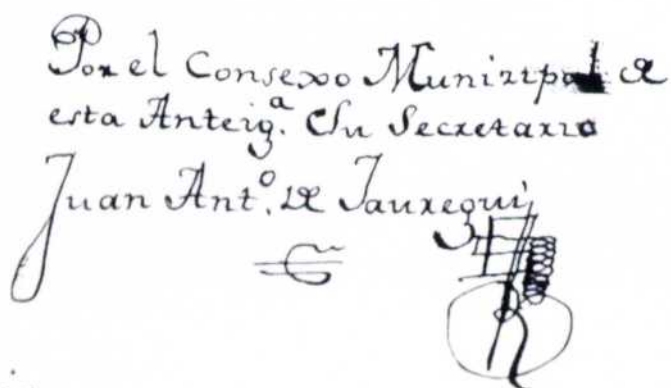 Por el Consexo Munizipal de
esta Anteig.ª Su Secretario
Juan Ant.º de Jauregui